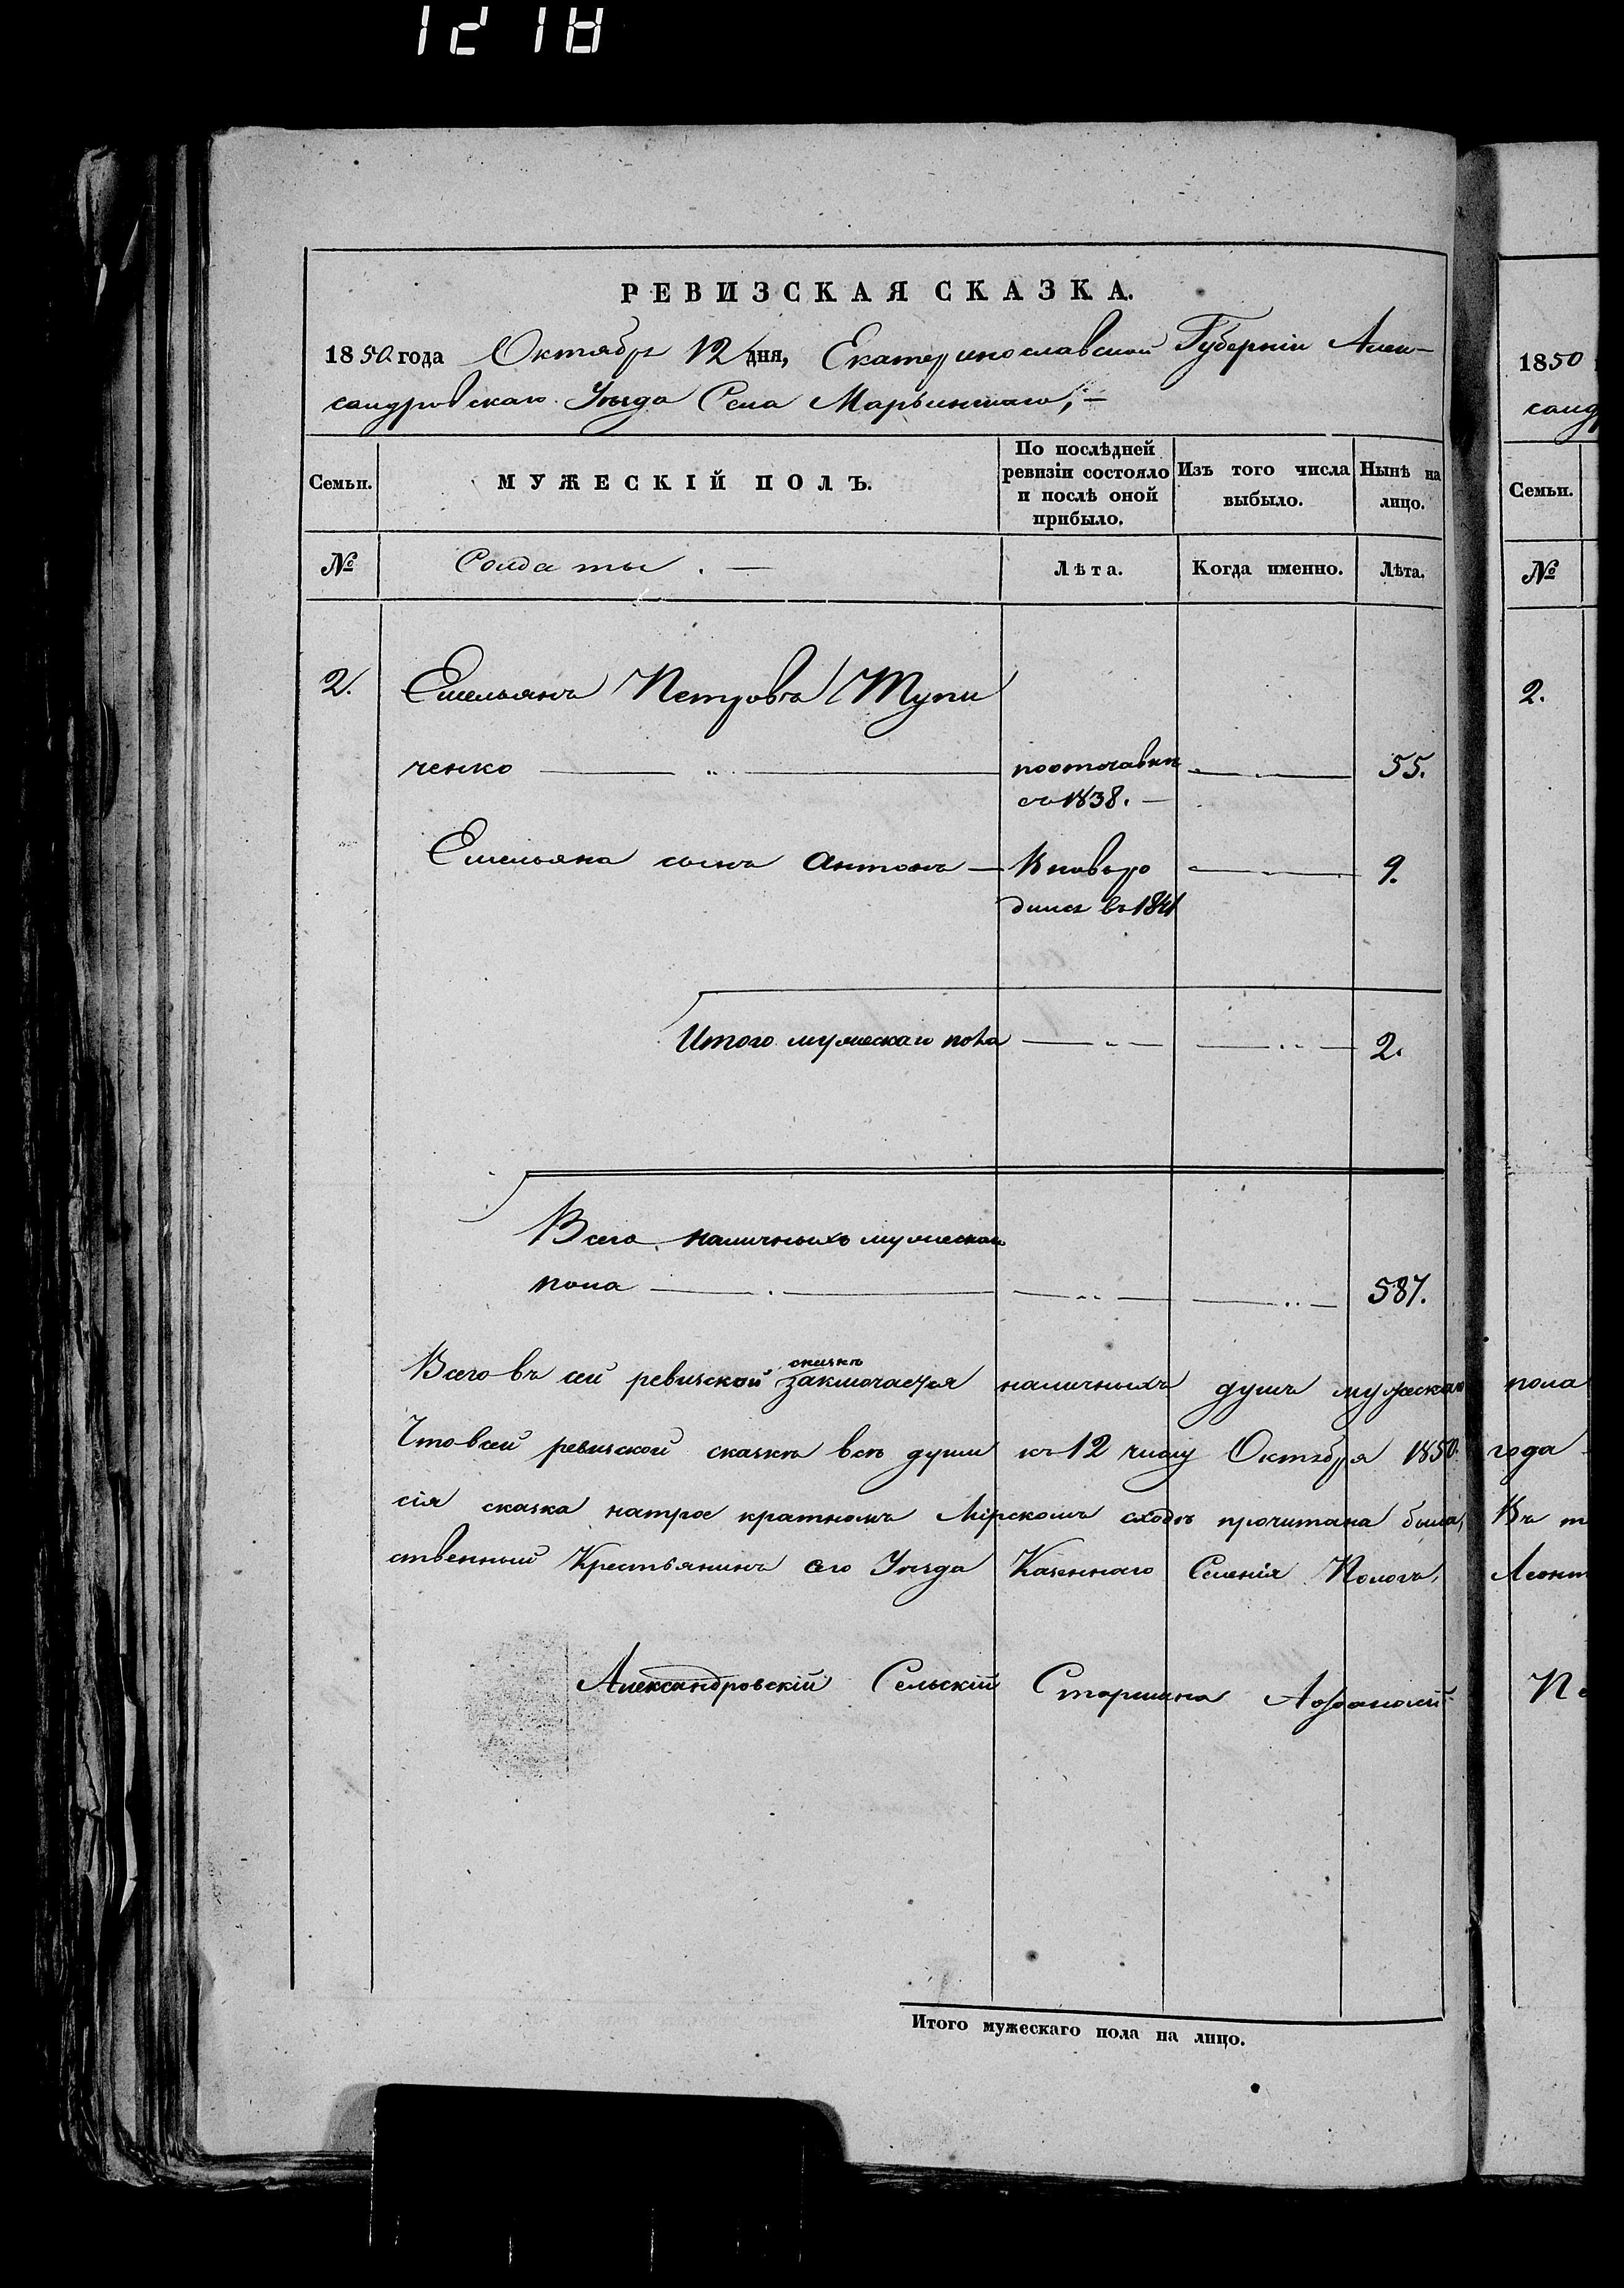 1218
РЕВИЗСКАЯ СКАЗКА.
1850 года Октября 12 дня, Екатеринославской Губерніи Алек-
сандровскаго Уѣзда Села Марьинскаго;
Семьи.
МУЖЕСКІЙ ПОЛЪ.
По послѣдней
ревизіи состояло
и послѣ оной
прибыло.
Изъ того числа
выбыло.
Нынѣ на
лицо.
№
Солдаты.
Лѣта.
Когда именно.
Лѣта.
2. Емельянъ Петровъ Тупи
ченко поотставкѣ 55.
съ 1838.
Емельяна сынъ Антонъ Вновьро 9.
дился въ 1841
Итого мужескаго пола 2.
Всего наличныхъ мужескаго
пола 587.
сказкѣ
Всего въ сей ревизской заключается наличныхъ душъ мужескаго
Что всей ревизской сказкѣ всѣ души къ 12 числу Октября 1850.
сія сказка натрое кратномъ Мірскомъ сходѣ прочитана была,
ственный Крестьянинъ сего Уѣзда Казеннаго Селенія Пологъ,
Александровскій Сельскій Старшина
Итого мужескаго пола на лицо.
1850
санд
Семьи.
№
2.
пола
года
Въ т
Леонт